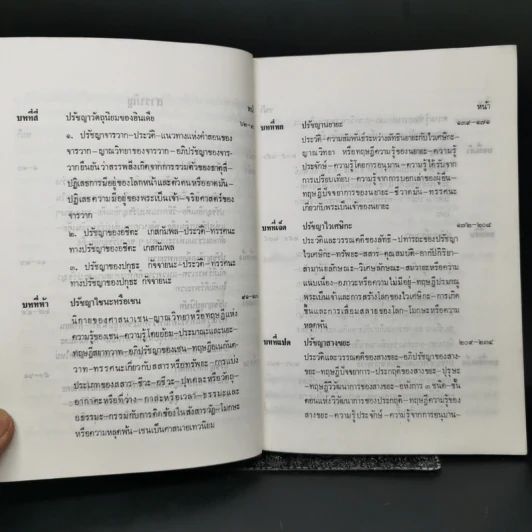 บทที่สี่ ปรัชญาวัตถุนิยมของอินเดีย
๑. ปรัชญาจารวาก-ประวัติ-แนวทางแห่งคำสอนของ
จารวาก-ญาณวิทยาของจารวาก-อภิปรัชญาของจาร-
วากยืนยันว่าสรรพสิ่งเกิดจากการรวมตัวของธาตุสี่-
ปฏิเสธการมีอยู่ของโลกหน้าและตัวตนหรืออาตมัน-
ปฏิเสธความมีอยู่ของพระเป็นเจ้า-จริยศาสตร์ของ
จารวาก
๒. ปรัชญาของอชิตะ เกสกัมพล-ประวัติ-ทรรศนะ
ทางปรัชญาของอชิตะ เกสกัมพล
๓. ปรัชญาของปกุธะ กัจจายนะ-ประวัติ-ทรรศนะ
ทางปรัชญาของปกุธะ กัจจายนะ
บทที่ห้า ปรัชญาไชนะหรือเชน
นิกายของศาสนาเชน-ญาณวิทยาหรือทฤษฎีแห่ง
ความรู้ของเชน-ความรู้โดยอ้อม-ประมาณะและนยะ-
ทฤษฎีสยาทวาท-อภิปรัชญาของเชน-ทฤษฎีอเนกันต-
วาท-ทรรศนะเกี่ยวกับสสารหรือทรัพยะ-การแบ่ง
ประเภทของสสาร-ชีวะ-อชีวะ-ปุทคละหรือวัตถุ-
อากาศะหรือที่ว่าง-กาละหรือเวลา-ธรรมะและ
อธรรมะ-กรรมกับการติดข้องในสังสารวัฏ-โมกษะ
หรือความหลุดพ้น-เชนเป็นศาสนาอเทวนิยม
หน้า
บทที่หก ปรัชญานยายะ ๑๓๙-๑๗๑
ประวัติ-ความสัมพันธ์ระหว่างลัทธินยายะกับไวเศษิกะ-
ญาณวิทยา หรือทฤษฎีความรู้ของนยายะ-ความรู้
ประจักษ์-ความรู้โดยการอนุมาน-ความรู้ได้รับจาก
การเปรียบเทียบ-ความรู้จากการบอกเล่าของผู้อื่น-
ทฤษฎีปัจจยาการของนยายะ-ชีวาตมัน-ทรรศนะ
เกี่ยวกับพระเป็นเจ้าของนยายะ
บทที่เจ็ด ปรัชญาไวเศษิกะ ๑๗๒-๒๐๘
ประวัติและวรรณคดีของลัทธิ-ปทารถะของปรัชญา
ไวเศษิกะ-ทรัพยะ-สสาร-คุณสมบัติ-อากัปกิริยา-
สามานยลักษณะ-วิเศษลักษณะ-สมวายะหรือความ
แน่นเนื่อง-อภาวะหรือความไม่มีอยู่-ทฤษฎีปรมาณู
พระเป็นเจ้าและการสร้างโลกของไวเศษิกะ-การเกิด
ขึ้นและการเสื่อมสลายของโลก-โมกษะหรือความ
หลุดพ้น
บทที่แปด ปรัชญาสางขยะ ๒๐๙-๒๓๘
ประวัติและวรรณคดีของสางขยะ-อภิปรัชญาของสาง-
ขยะ-ทฤษฎีปัจจยาการ-ประกฤติของสางขยะ-ปุรุษะ
-ทฤษฎีวิวัฒนาการของสางขยะ-อหังการ ๓ ชนิด-ขั้น
ตอนแห่งวิวัฒนาการของประกฤติ-ทฤษฎีความรู้ของ
สางขยะ-ความรู้ประจักษ์-ความรู้จากการอนุมาน-